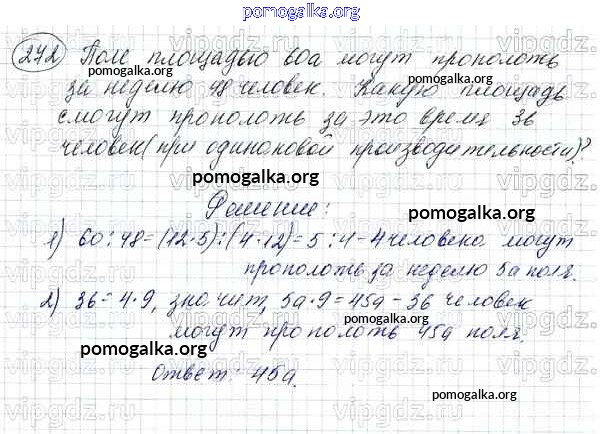 pomogalka.org
272 Поле площадью 60а могут прополоть
за неделю 48 человек. Какую площадь
смогут прополоть за это время 36
человек (при одинаковой производительности)?
pomogalka.org
Решение:
1) 60:48=(12·5):(4·12)=5:4-4 человека могут
прополоть за неделю 5а поля.
2) 36=4·9, значит, 5а·9=45а-36 человек
могут прополоть 45а поля.
pomogalka.org
Ответ: 45а.
pomogalka.org
vipgdz.ru